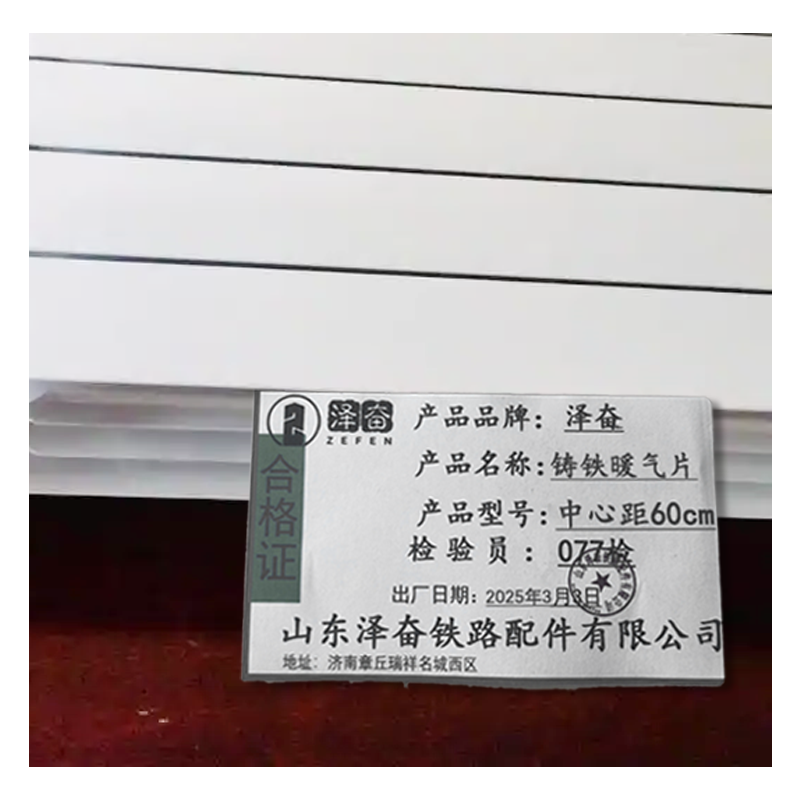 泽奋
ZEFEN
合格证
产品品牌：泽奋
产品名称：铸铁暖气片
产品型号：中心距60cm
检验员：077检
出厂日期：2025年3月3日
山东泽奋铁路配件有限公司
地址：济南章丘瑞祥名城西区